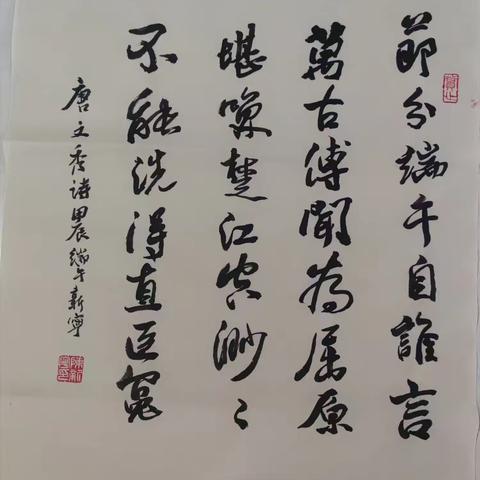 節分端午自誰言
萬古傳聞為屈原
堪笑楚江空渺々
不能洗得直臣冤
唐文秀詩甲辰端午新寧